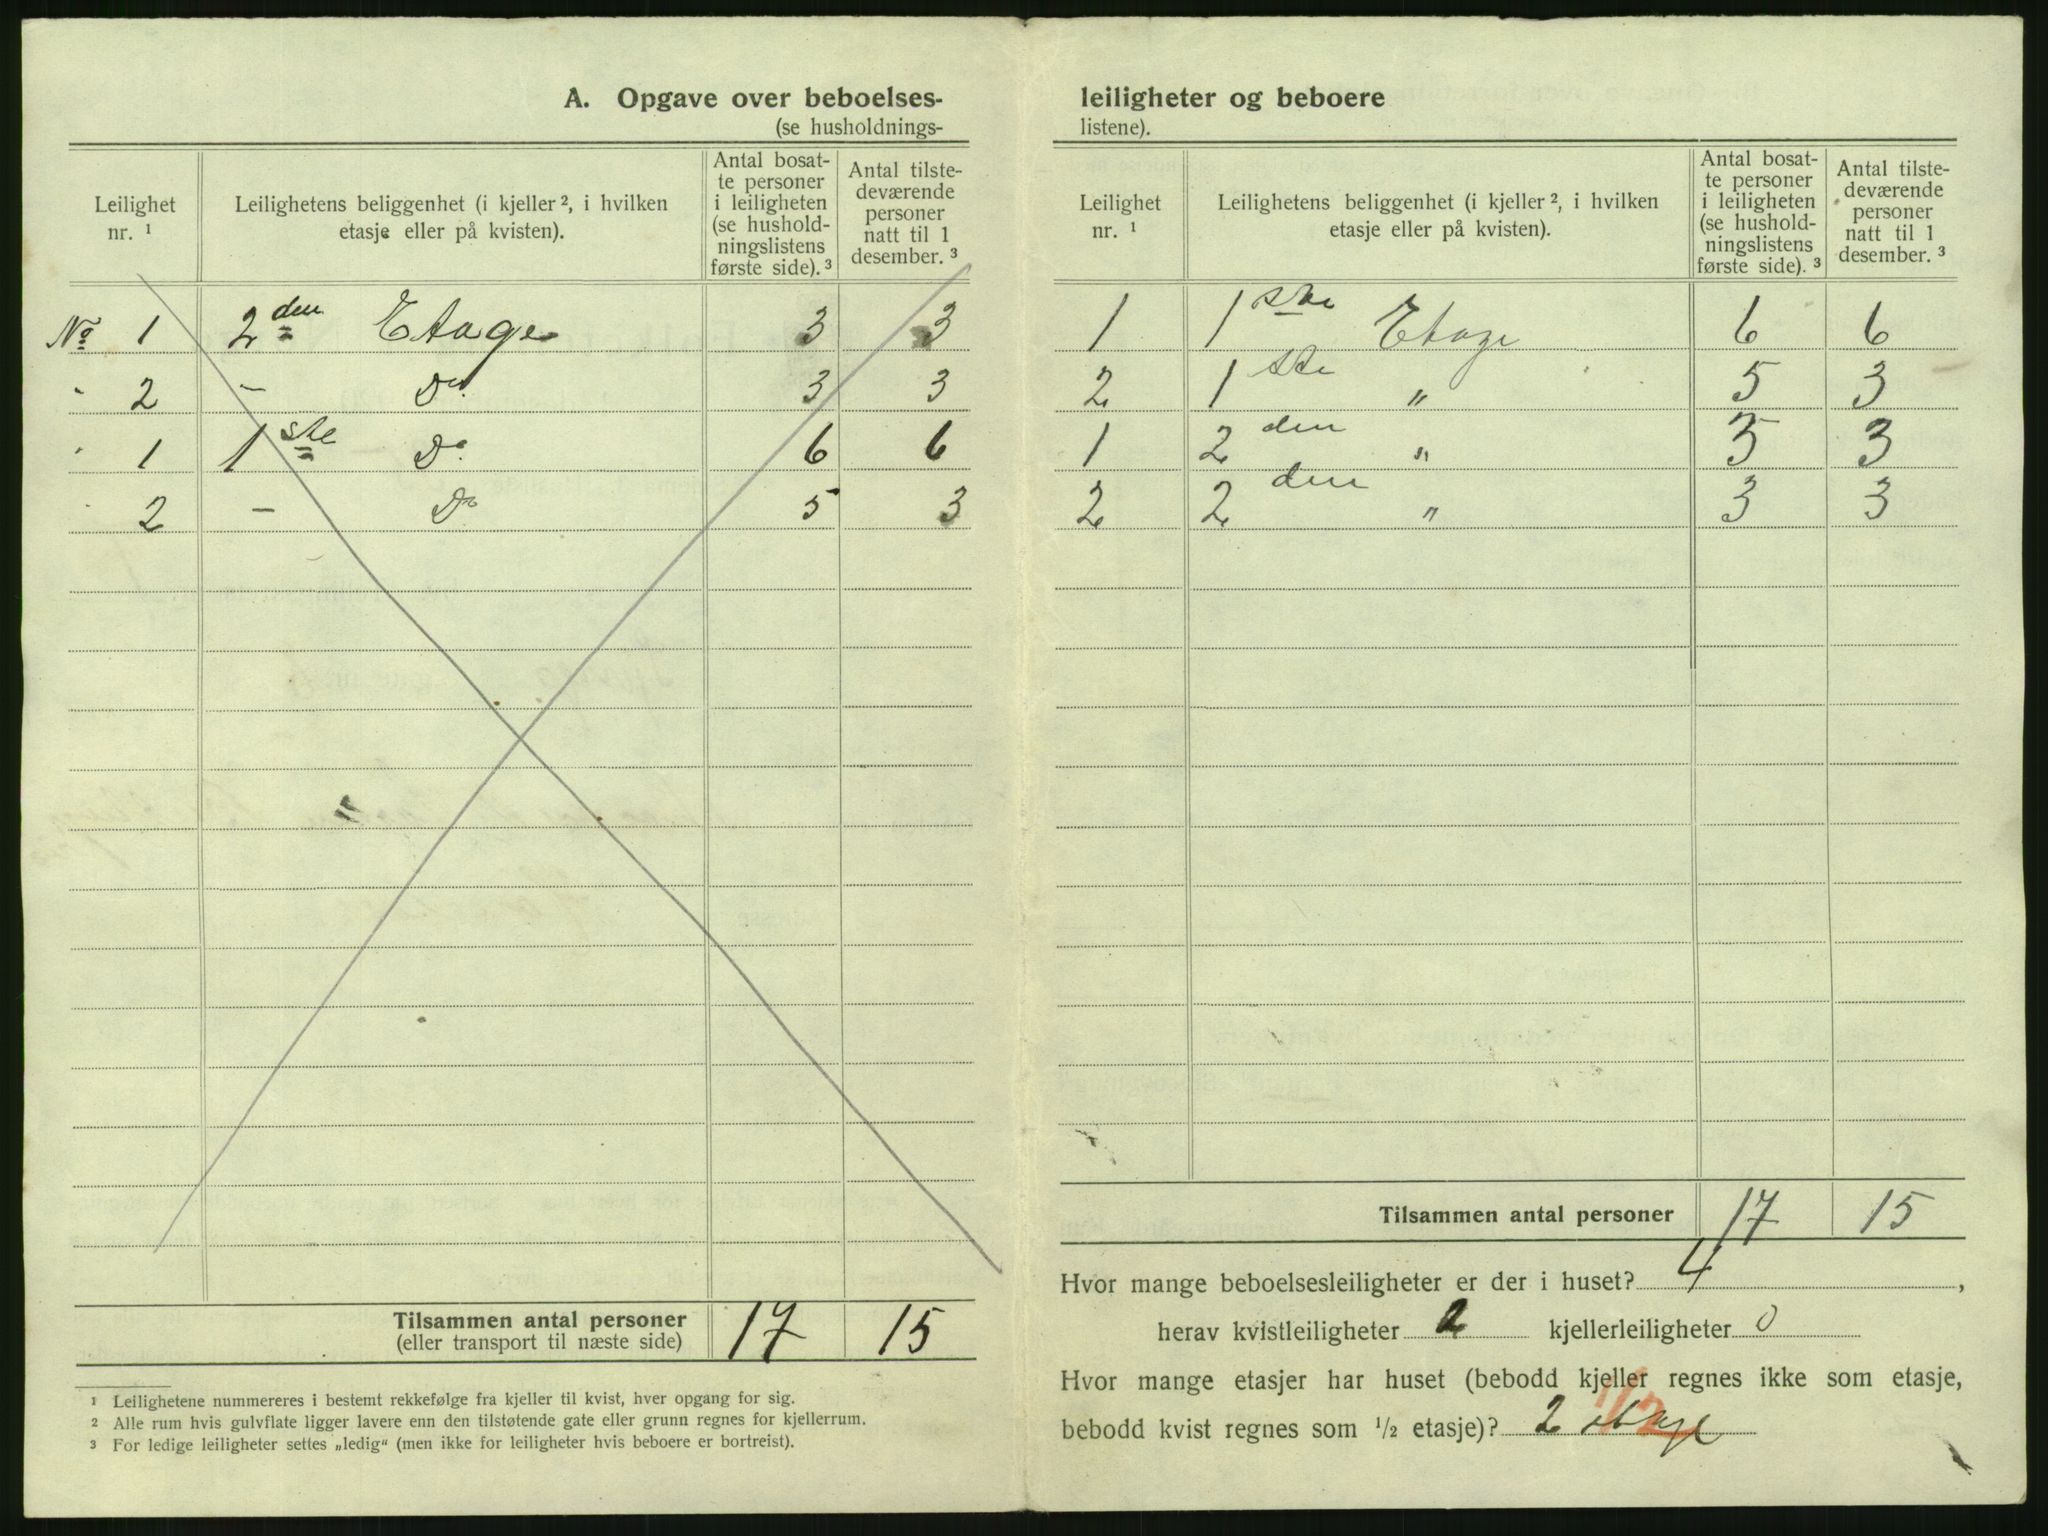 A. Opgave over beboelses-
(se husholdnings-
Leilighet nr. ¹
Leilighetens beliggenhet (i kjeller ², i hvilken etasje eller på kvisten).
Antal bosatte personer i leiligheten (se husholdningslistens første side). ³
Antal tilstedeværende personer natt til 1 desember. ³
No 1 2den Etage 3 3
" 2 – Do 3 3
" 1 1ste Do 6 6
" 2 – Do 5 3
Tilsammen antal personer 17 15
(eller transport til næste side)
¹ Leilighetene nummereres i bestemt rekkefølge fra kjeller til kvist, hver opgang for sig.
² Alle rum hvis gulvflate ligger lavere enn den tilstøtende gate eller grunn regnes for kjellerrum.
³ For ledige leiligheter settes „ledig“ (men ikke for leiligheter hvis beboere er bortreist).
leiligheter og beboere
listene).
Leilighet nr. ¹
Leilighetens beliggenhet (i kjeller ², i hvilken etasje eller på kvisten).
Antal bosatte personer i leiligheten (se husholdningslistens første side). ³
Antal tilstedeværende personer natt til 1 desember. ³
1 1ste Etage 6 6
2 1ste " 5 3
1 2den " 3 3
2 2den " 3 3
Tilsammen antal personer 17 15
Hvor mange beboelsesleiligheter er der i huset? 4,
herav kvistleiligheter 2 kjellerleiligheter 0
Hvor mange etasjer har huset (bebodd kjeller regnes ikke som etasje,
bebodd kvist regnes som ½ etasje)? 2 etage